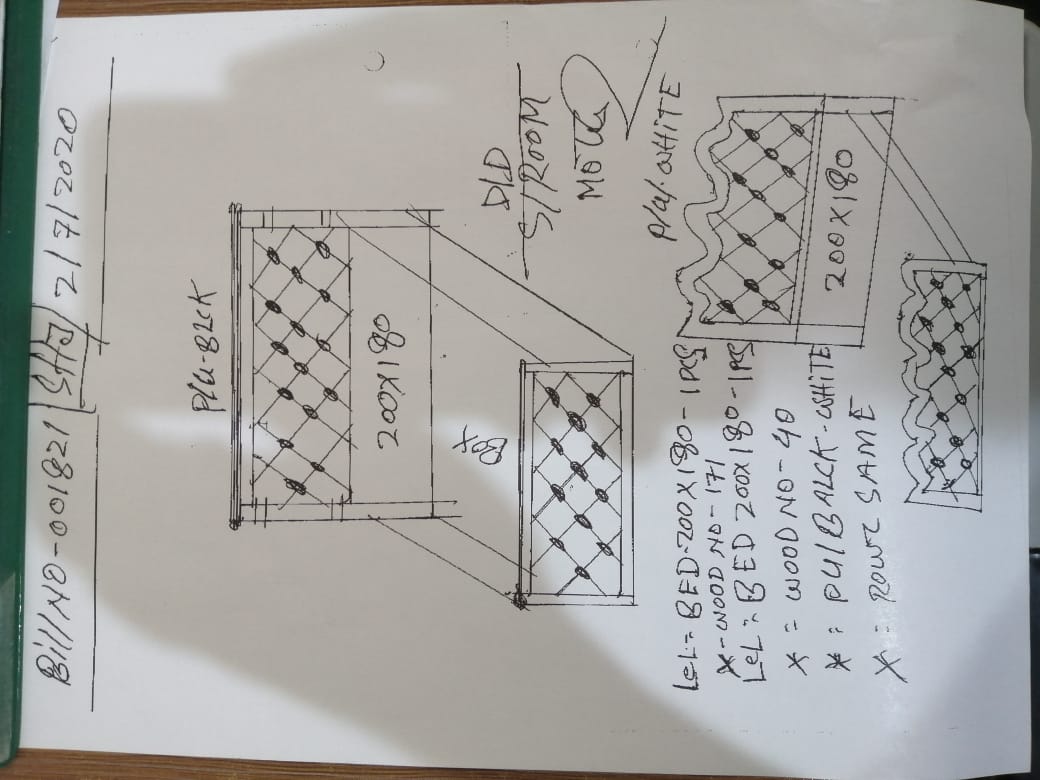 Bill NO-001821 SHJ 2/7/2020
P/U-BLCK
200X180
BOX
D/D
S/ROOM
P/U/.WHITE
LeL= BED-200X180-1PCS
X-WOOD NO-171
LeL= BED 200X180-1PCS
X = WOOD NO-40
X = PU/BALCK-WHITE
X = SAME
200X180